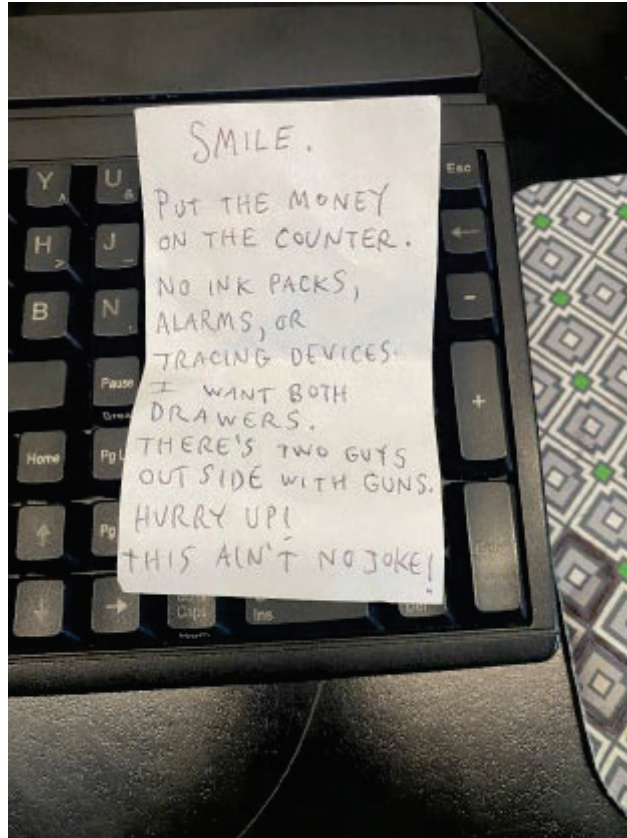 SMILE.
PUT THE MONEY
ON THE COUNTER.
NO INK PACKS,
ALARMS, OR
TRACING DEVICES.
I WANT BOTH
DRAWERS.
THERE'S TWO GUYS
OUTSIDE WITH GUNS.
HURRY UP!
THIS AIN'T NO JOKE!
Y
U
Esc
H
J
B
N
Pause
Home
Pg
Pg
Caps
Ins